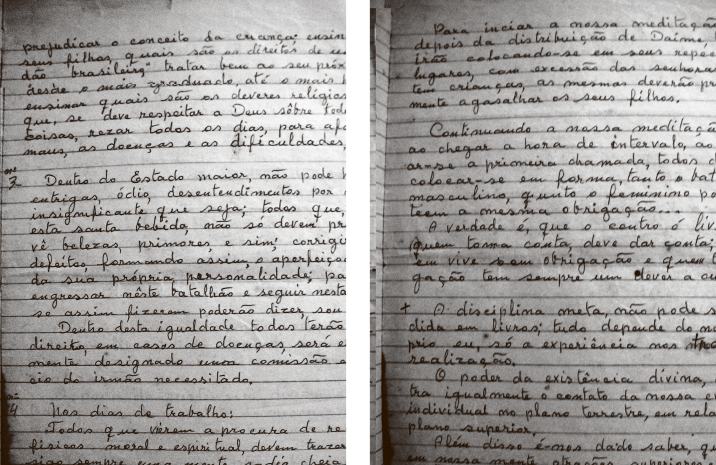 prejudicar o conceito da criança: ensin
seus filhos, quais são os direitos de u
dão brasileiro" tratar bem ao seu próx
desde o mais graduado, até o mais
ensinar quais são os deveres religios
que, se deve respeitar a Deus sôbre tod
coisas, rezar todos os dias, para afa
maus, as doenças e as dificuldades,
nº
3 Dentro do Estado maior, não pode h
entrigas, ódio, desentendimentos por
insignificante que seja; todos que,
esta santa bebida, não só devem pr
vê belezas, primores, e sim, corrigi
defeitos, formando assim, o aperfeiço
da sua própria personalidade; pa
engressar nêste batalhão e seguir nesta
se assim fizerem poderão dizer, sou
Dentro desta igualdade todos terão
direito, em casos de doenças, será e
mente designado uma comissão e
cio do irmão necessitado.
nº
4 Nos dias de trabalho:
Todos que vierem a procura de re
físicos moral e espiritual, devem trazer
sigo sempre uma mente sadia cheia
Para iniciar a nossa meditação
depois da distribuição de Daime,
irão colocando-se em seus
lugares, com excessão das senhoras
tem crianças, as mesmas deverão pri
mente agasalhar os seus filhos.
Continuando a nossa meditação
ao chegar a hora de intervalo, ao
ar-se a primeira chamada, todos d
colocar-se em forma, tanto o bat
masculino, qunto o feminino po
teem a mesma obrigação...
A verdade é, que o centro é liv
quem toma conta, deve dar conta;
em vive sem obrigação e quem t
gação tem sempre um dever a cu
+ A disciplina meta, não pode s
dida em livros; tudo depende do
prio eu, só a experiência nos
realização.
O poder da existência divina,
tra igualmente o contato da nossa
individual no plano terrestre, em rela
plano superior.
Além disso é-nos dado saber, qu
em nossa mente atrações superiores